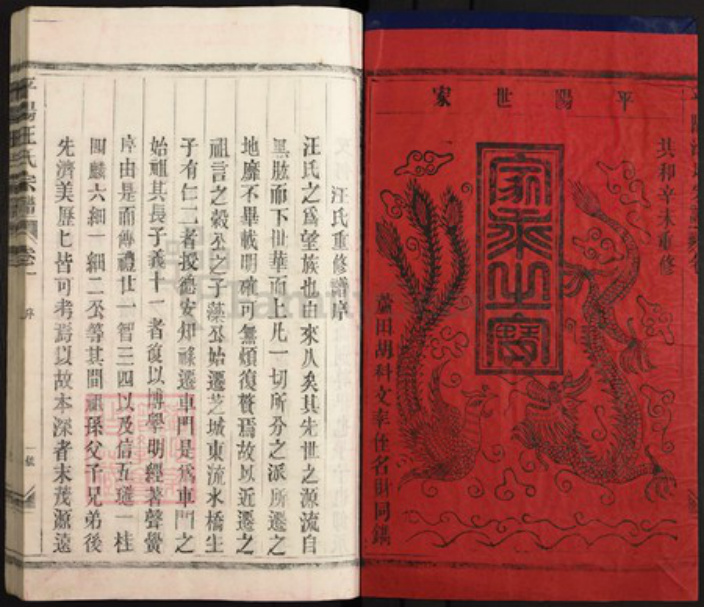 平陽世家
共和辛未重修
家乘之寶
蘆田胡科文率侄名財同鐫
汪氏重修譜序
汪氏之爲望族也由來久矣其先世之源流自
黑肱而下世華而上凡一切所分之派所遷之
地靡不畢載明確可無煩復贅焉故以近遷之
祖言之榖公之子藻公始遷芝城東流水橋生
子有仁二者授德安知祿遷車門是爲車門之
始祖其長子義十一者復以博學明經著聲黌
序由是而傳禮廿一智三四以及信五璉一桂
四麟六細一細二公等其間祖孫父子兄弟後
先濟美歷匕皆可考焉以故本深者末茂源遠
平陽汪氏宗譜 卷一 序 一